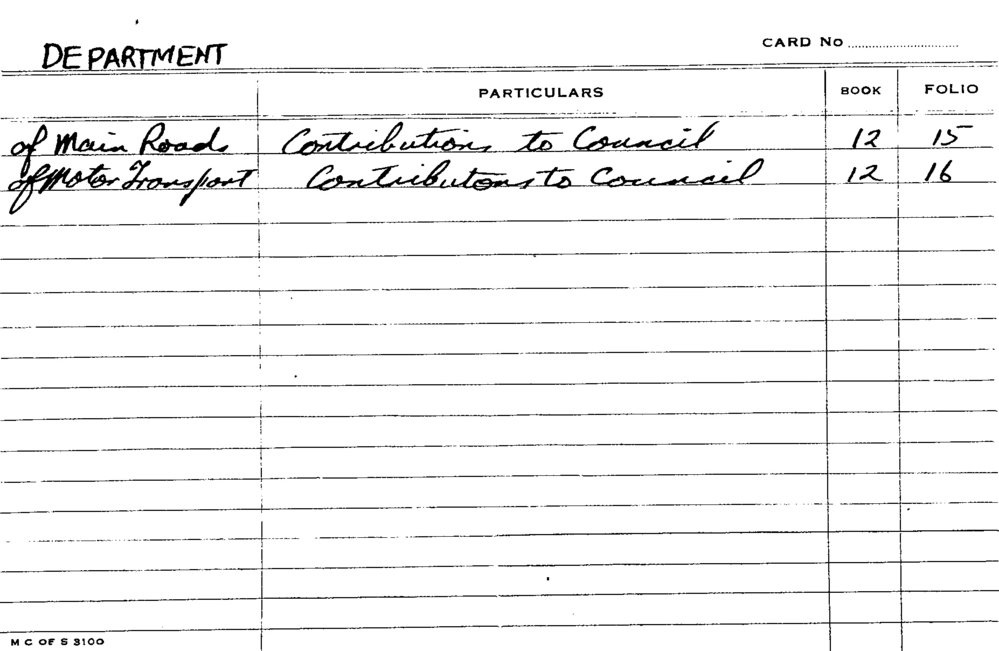 DEPARTMENT
CARD No
PARTICULARS BOOK FOLIO
of Main Roads Contributions to Council 12 15
of Motor Transport Contributons to Council 12 16
M C OF S 3100